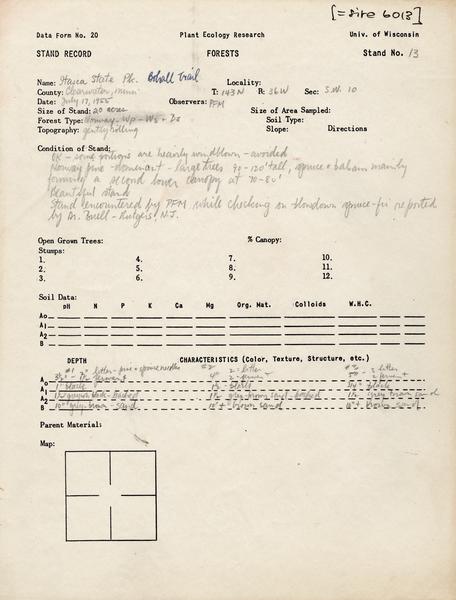 [= site 6013]
Data Form No. 20 Plant Ecology Research Univ. of Wisconsin
STAND RECORD FORESTS Stand No. 13
Name: Itasca State Pk. Bohall trail Locality:
County: Clearwater, Minn T: 143N R: 36W Sec: S.W. 10
Date: July 17, 1955 Observers: PFM
Size of Stand: 20 acres Size of Area Sampled:
Forest Type: Norway - Wp - Ws + Soil Type:
Topography: gently rolling Slope: Directions
Condition of Stand:
OK - some portions are heavily windblown - avoided
Norway pine dominant - large trees 90-120' tall, spruce + balsam mainly
forming a second lower canopy at 70-80'
beautiful stand
Stand encountered by PFM while checking on blowdown spruce-fir reported
by Dr. Buell - Rutgers, N.J.
Open Grown Trees: % Canopy:
Stumps:
1. 4. 7. 10.
2. 5. 8. 11.
3. 6. 9. 12.
Soil Data:
pH N P K Ca Mg Org. Mat. Colloids W.H.C.
Ao
A1
A2
B
DEPTH CHARACTERISTICS (Color, Texture, Structure, etc.)
#1 litter - pine + spruce needles #2 2 - litter 2 - litter
Ao
A1 1" black 1½ - black black
A2 1½ grey brown sand - leached 1½ grey brown sand
B 10"+ grey brown - sand 10"+ brown sand 10"+ brown sand
Parent Material:
Map: